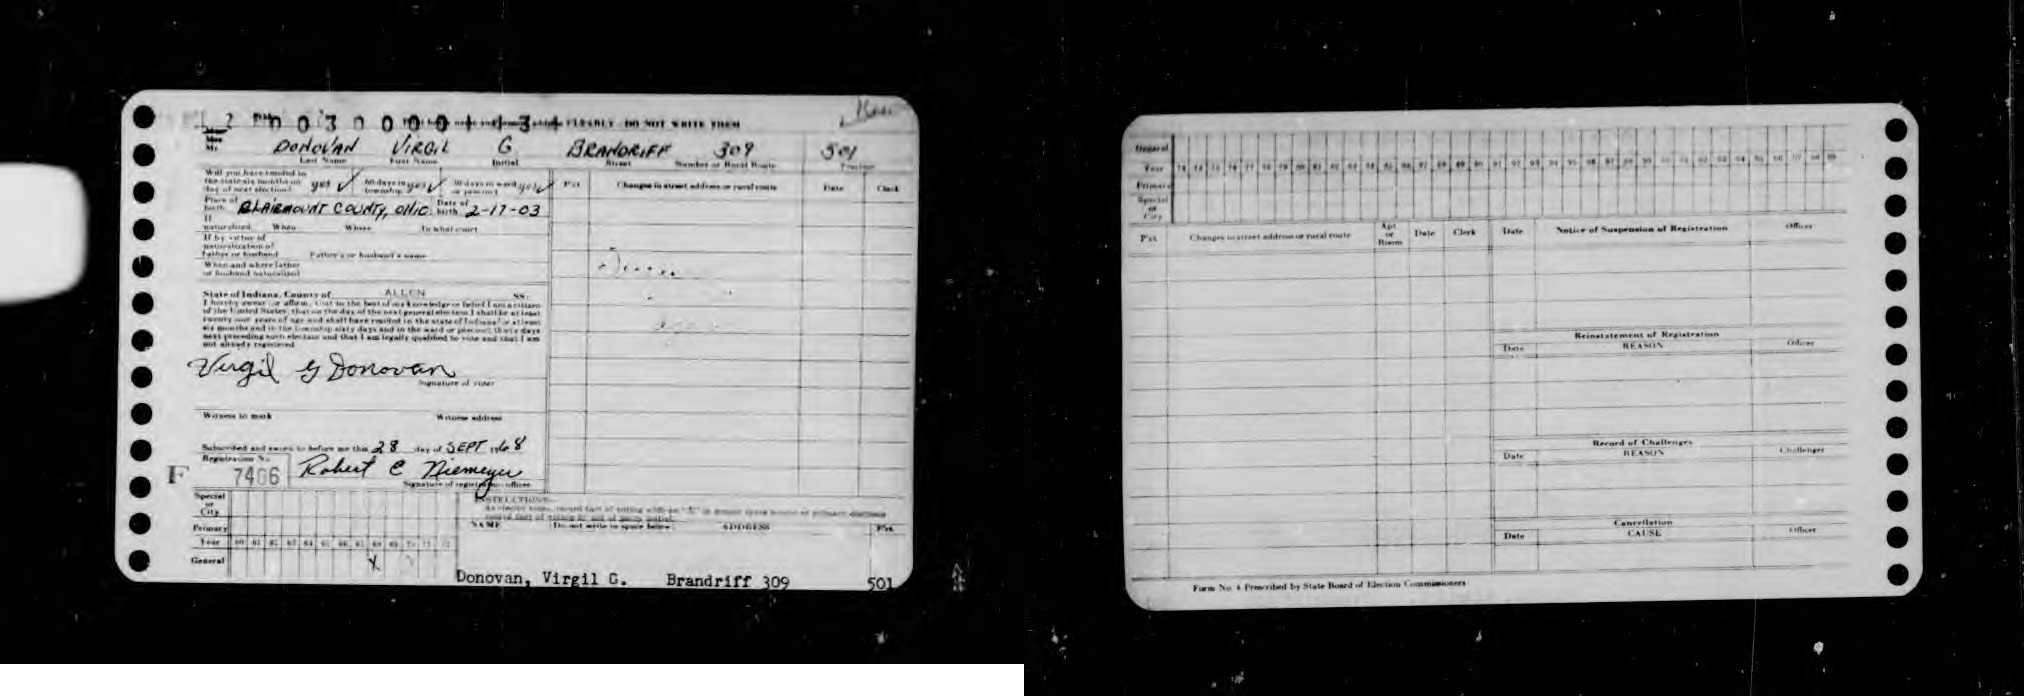 CLEARLY DO NOT WRITE THEM
DONOVAN VIRGIL G BRANDRIFF 309 501
Last Name First Name Initial Street Number or Rural Route Precinct
Will you have resided in
the state six months on
day of next election? yes ✓ 60 days in township yes ✓ 30 days in ward or precinct yes ✓
Pct Changes in street address or rural route Date Clerk
Place of birth BLAIRMOUNT COUNTY, OHIO Date of birth 2-17-03
If naturalized When Where In what court
If by virtue of
naturalization of
Father or husband Father's or husband's name
When and where father
or husband naturalized
State of Indiana, County of ALLEN SS:
I hereby swear or affirm, that to the best of my knowledge or belief I am a citizen
of the United States, that on the day of the next general election I shall be at least
twenty one years of age and shall have resided in the state of Indiana for at least
six months and in the township sixty days and in the ward or precinct thirty days
next preceding such election and that I am legally qualified to vote and that I am
not already registered
Virgil G Donovan
Signature of voter
Witness to mark Witness address
Subscribed and sworn to before me this 28 day of SEPT 1968
Registration No.
F 7406 Robert E Niemeyer
Signature of registration officer
Special
or
City
INSTRUCTIONS
Primary
NAME Do not write in space below ADDRESS Pct.
Year 60 61 62 63 64 65 66 67 68 69 70 71 72
General X
Donovan, Virgil G. Brandriff 309 501
General
Year
Primary
Special
or
City
Pct Changes in street address or rural route Apt or Room Date Clerk Date Notice of Suspension of Registration Officer
Reinstatement of Registration
Date REASON Officer
Record of Challenges
Date REASON Challenger
Cancellation
Date CAUSE Officer
Form No. 4 Prescribed by State Board of Election Commissioners